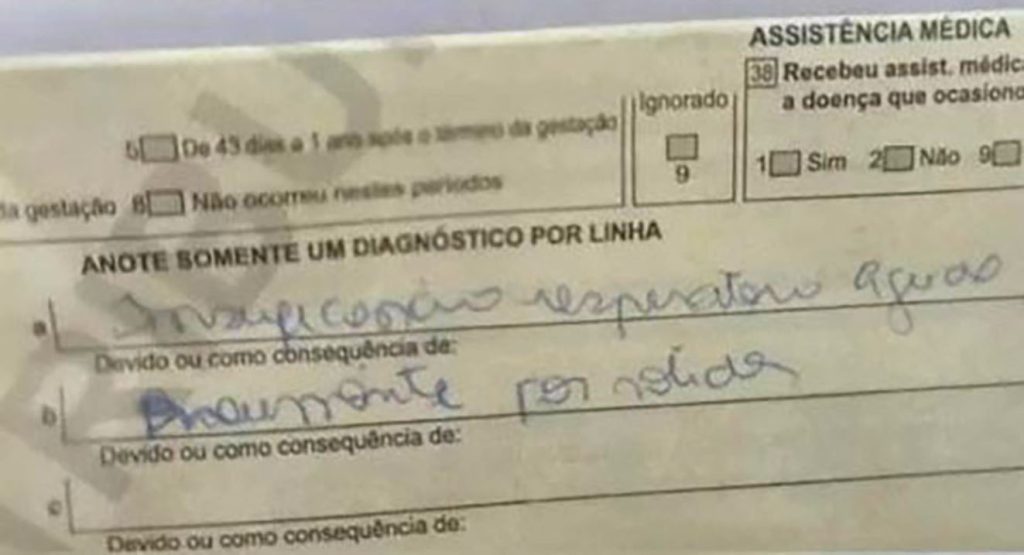 ASSISTÊNCIA MÉDICA
38 Recebeu assist. médic
a doença que ocasiono
Ignorado
5 De 43 dias a 1 ano após o término da gestação
9
1 Sim 2 Não 9
da gestação 8 Não ocorreu nestes períodos
ANOTE SOMENTE UM DIAGNÓSTICO POR LINHA
a respiratório aguda
Devido ou como consequência de:
b por sólidos
Devido ou como consequência de:
c
Devido ou como consequência de: